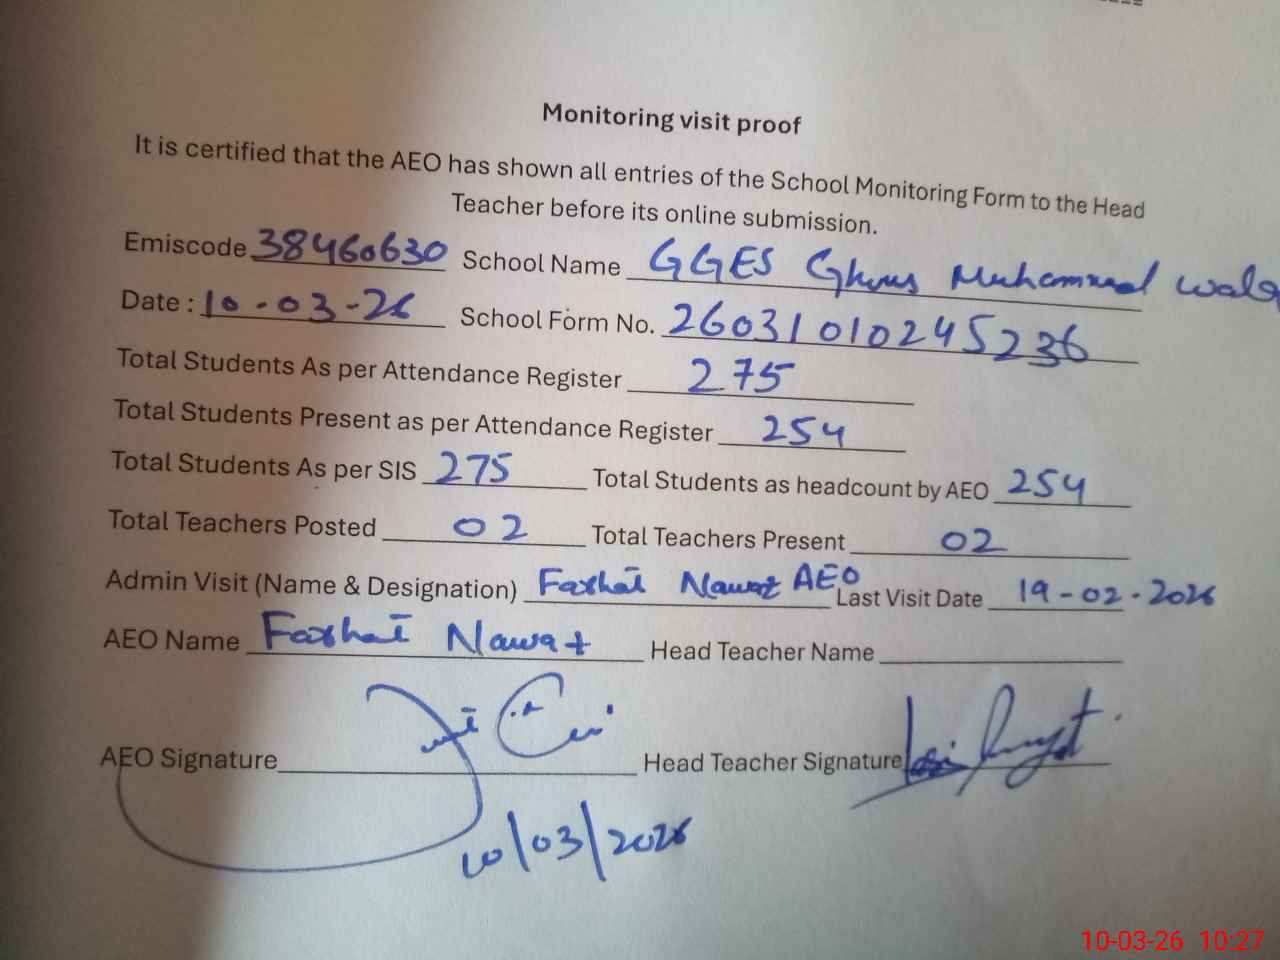 Monitoring visit proof
It is certified that the AEO has shown all entries of the School Monitoring Form to the Head
Teacher before its online submission.
Emiscode 38460630 School Name GGES Ghous Muhammad wala
Date : 10-03-26 School Form No. 26031010245236
Total Students As per Attendance Register 275
Total Students Present as per Attendance Register 254
Total Students As per SIS 275 Total Students as headcount by AEO 254
Total Teachers Posted 02 Total Teachers Present 02
Admin Visit (Name & Designation) Farhat Nawaz AEO Last Visit Date 19-02-2026
AEO Name Farhat Nawaz Head Teacher Name
AEO Signature Head Teacher Signature
10/03/2026
10-03-26 10:27